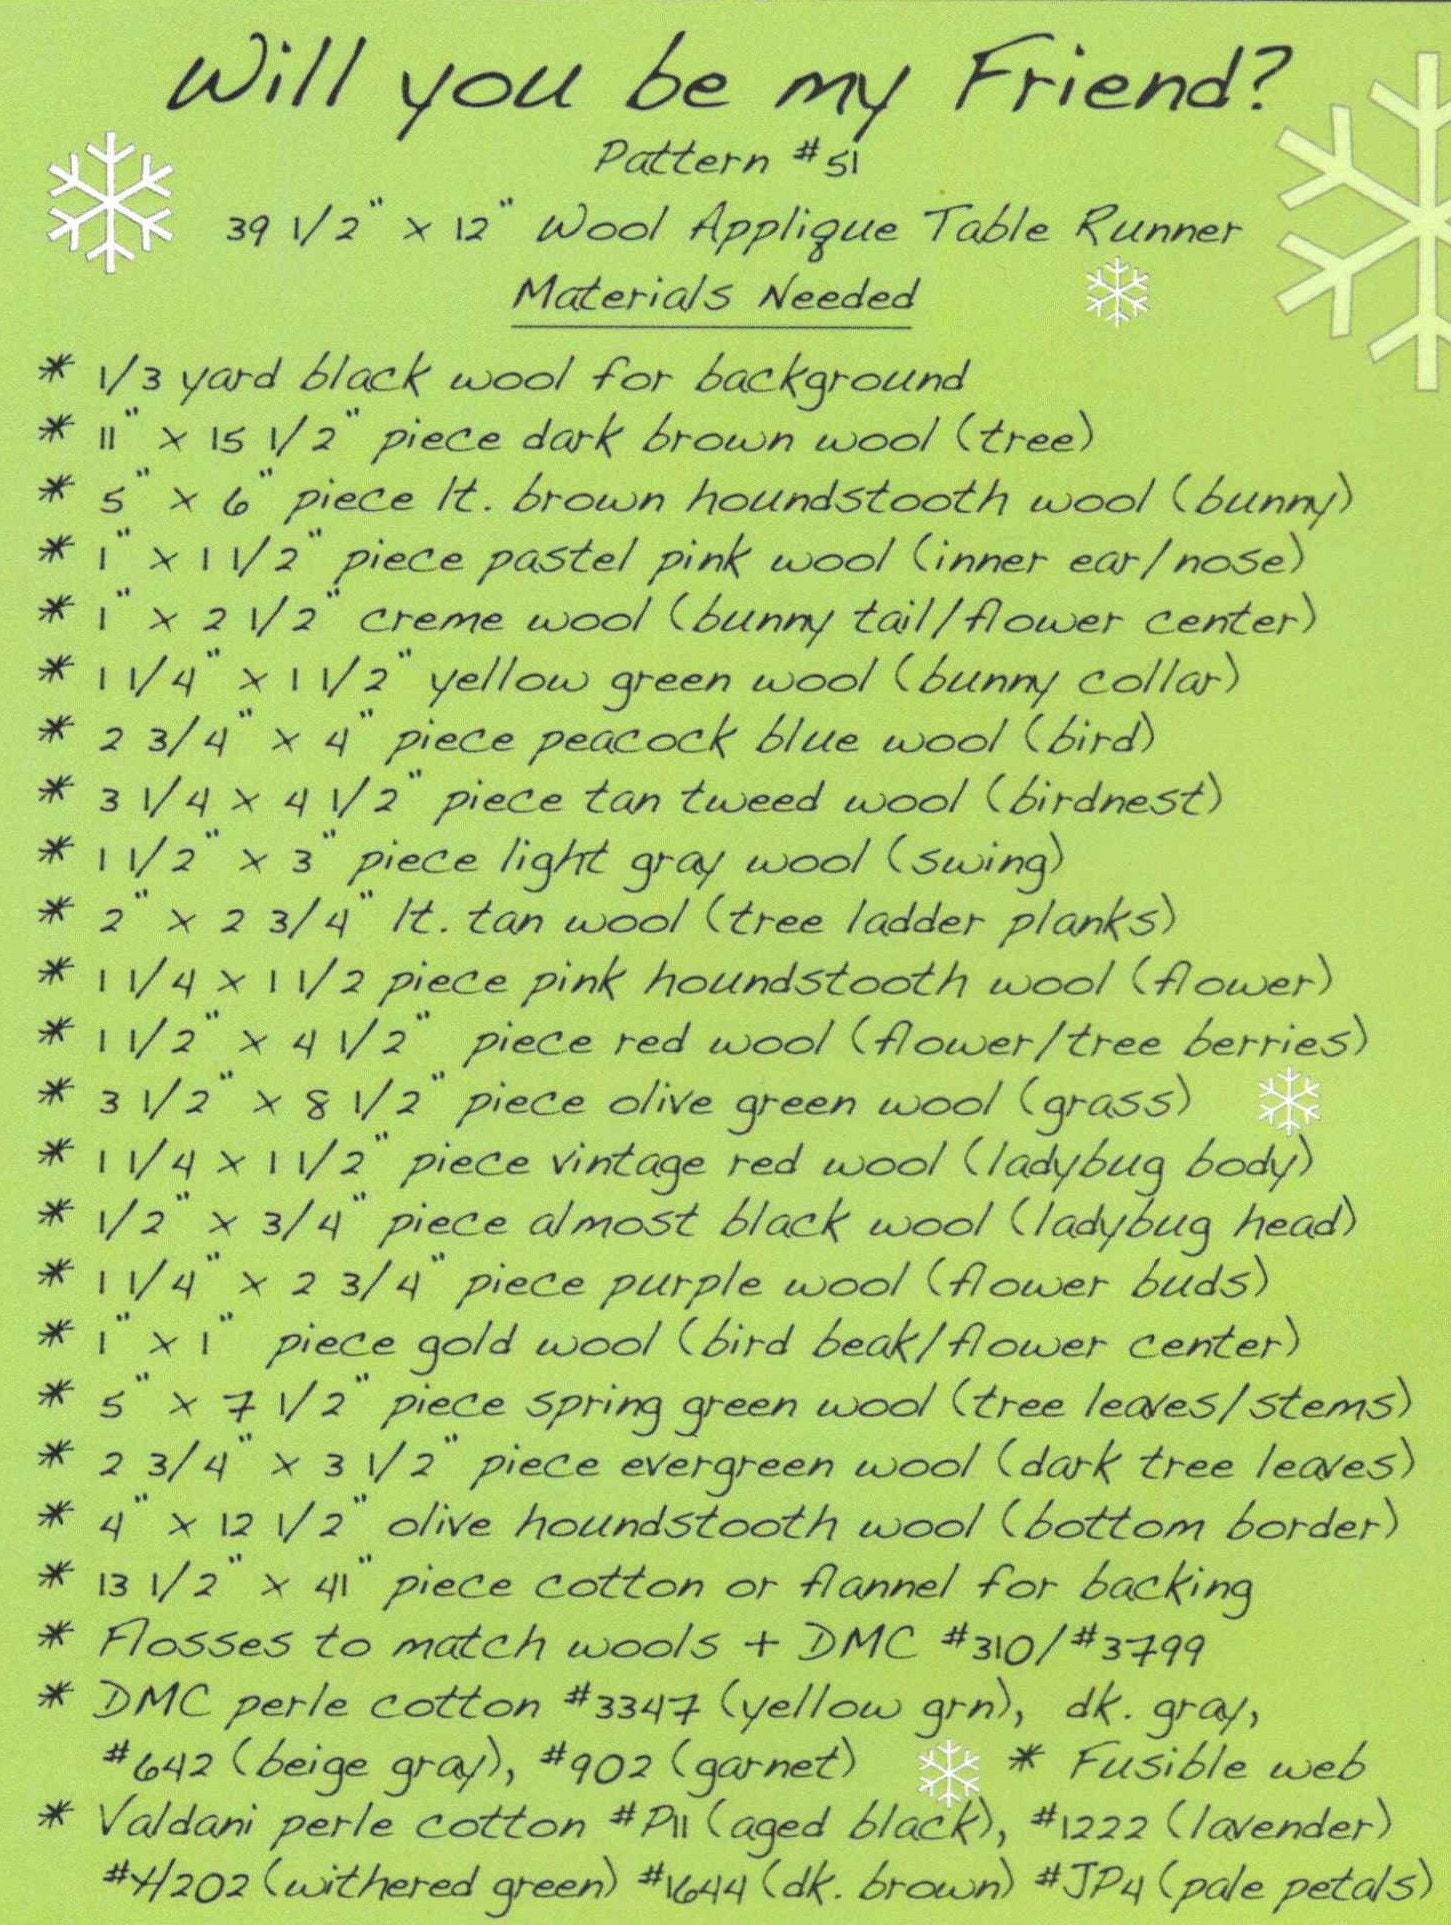 Will you be my Friend?
Pattern #51
39 1/2" x 12" Wool Applique Table Runner
Materials Needed
* 1/3 yard black wool for background
* 11" x 15 1/2" piece dark brown wool (tree)
* 5" x 6" piece lt. brown houndstooth wool (bunny)
* 1" x 1 1/2" piece pastel pink wool (inner ear/nose)
* 1" x 2 1/2" creme wool (bunny tail/flower center)
* 1 1/4" x 1 1/2" yellow green wool (bunny collar)
* 2 3/4" x 4" piece peacock blue wool (bird)
* 3 1/4 x 4 1/2" piece tan tweed wool (birdnest)
* 1 1/2" x 3" piece light gray wool (swing)
* 2" x 2 3/4" lt. tan wool (tree ladder planks)
* 1 1/4 x 1 1/2 piece pink houndstooth wool (flower)
* 1 1/2" x 4 1/2" piece red wool (flower/tree berries)
* 3 1/2" x 8 1/2" piece olive green wool (grass)
* 1 1/4 x 1 1/2" piece vintage red wool (ladybug body)
* 1/2" x 3/4" piece almost black wool (ladybug head)
* 1 1/4" x 2 3/4" piece purple wool (flower buds)
* 1" x 1" piece gold wool (bird beak/flower center)
* 5" x 7 1/2" piece spring green wool (tree leaves/stems)
* 2 3/4" x 3 1/2" piece evergreen wool (dark tree leaves)
* 4" x 12 1/2" olive houndstooth wool (bottom border)
* 13 1/2" x 41" piece cotton or flannel for backing
* Flosses to match wools + DMC #310/#3799
* DMC perle cotton #3347 (yellow grn), dk. gray,
#642 (beige gray), #902 (garnet) * Fusible web
* Valdani perle cotton #P11 (aged black), #1222 (lavender)
#H202 (withered green) #1644 (dk. brown) #JP4 (pale petals)